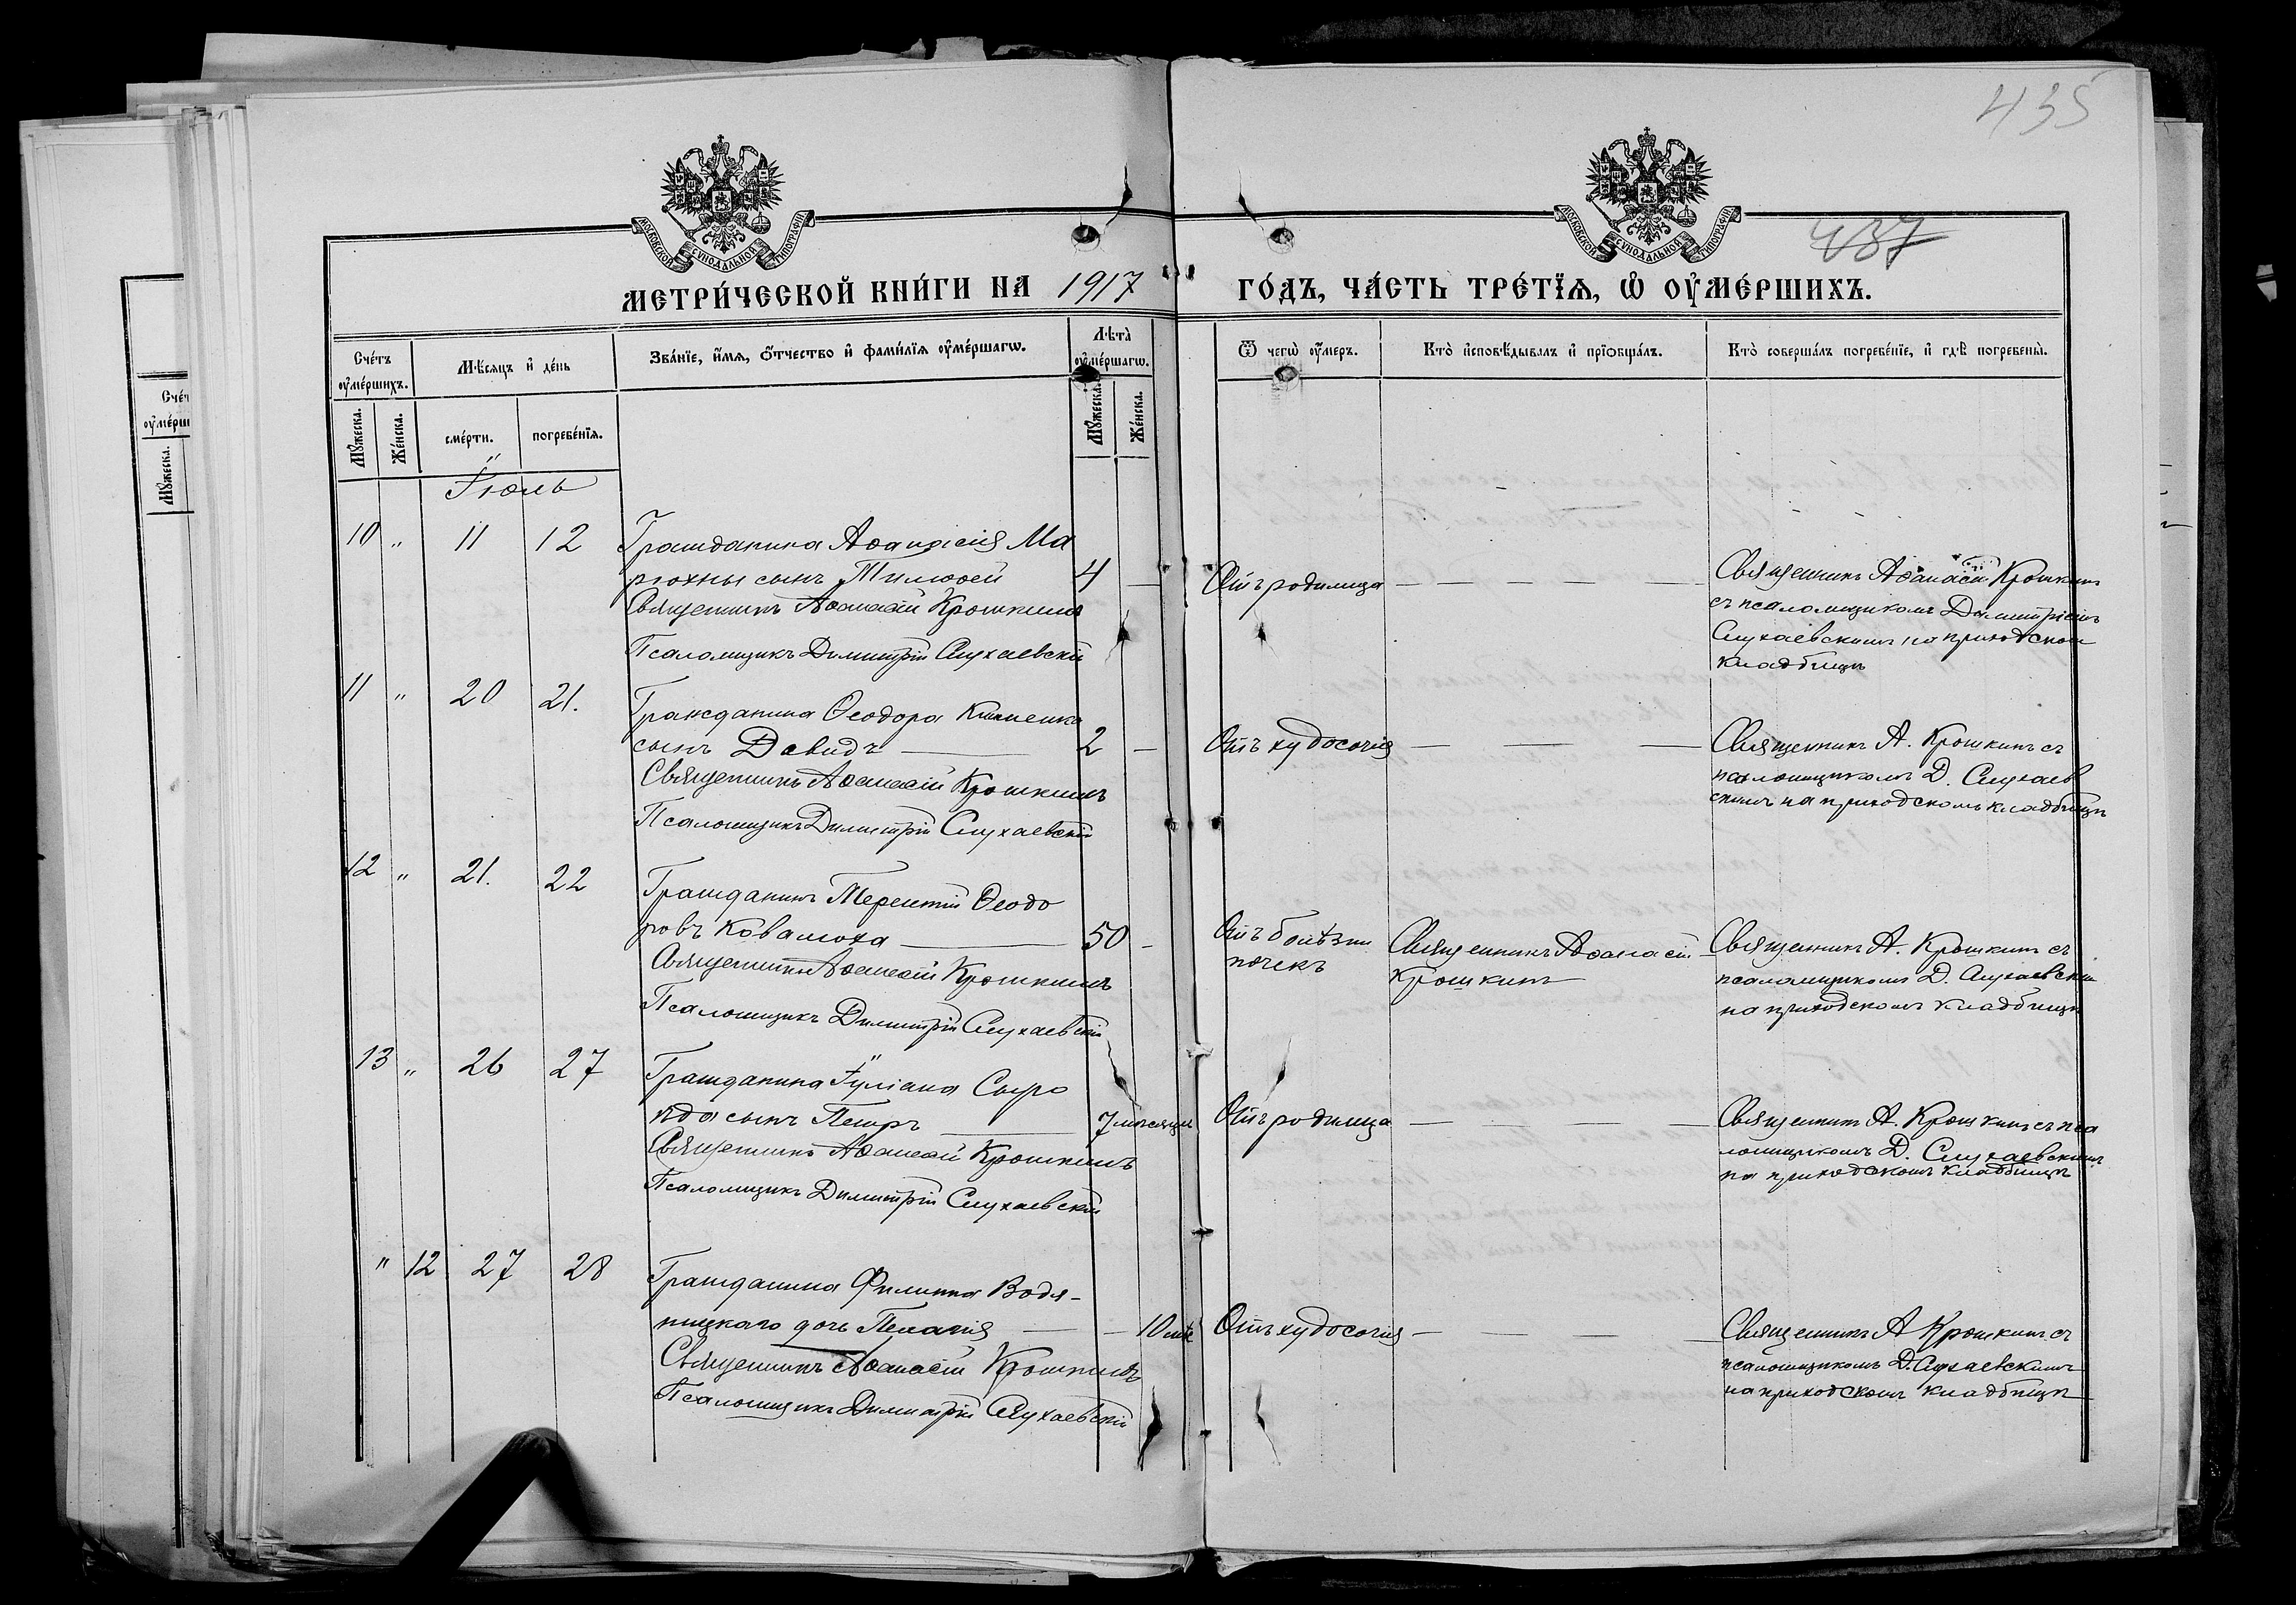 435
437
МОСКОВСКОЙ СѴНОДАЛЬНОЙ ТИПОГРАФІИ
МОСКОВСКОЙ СѴНОДАЛЬНОЙ ТИПОГРАФІИ
МЕТРИ́ЧЕСКОЙ КНИ́ГИ НА 1917 ГО́ДЪ, ЧА́СТЬ ТРЕ́ТЇѦ, Ѡ҆ ОУ҆МЕ́РШИХЪ.
Сче́тъ
оу҆ме́ршихъ.
Мꙋ́жеска.
Же́нска.
Мѣ́сѧцъ и҆ де́нь
сме́рти.
погребе́нїѧ.
Зва́нїе, и҆́мѧ, ѻ҆́тчество и҆ фами́лїѧ оу҆ме́ршагѡ.
Лѣ́та̀
оу҆ме́ршагѡ.
Мꙋ́жеска.
Же́нска.
Ѿ чегѡ̀ оу҆́меръ.
Кто̀ и҆сповѣ́дывалъ и҆ прїѡбща́лъ.
Кто̀ соверша́лъ погребе́нїе, и҆ гдѣ̀ погребены̀.
Іюль
10 " 11 12 Гражданина Аѳанасія Ма
рюхны сынъ Тимоѳей 4 —
Священникъ Аѳанасій Крошкинъ
Псаломщикъ Димитрій Слухаевскій
Отъ родимца
Священникъ Аѳанасій Крошкинъ
съ псаломщикомъ Димитріемъ
Слухаевскимъ на приходскомъ
кладбищѣ
11 " 20 21. Гражданина Ѳеодора
сынъ Давидъ — 2 —
Священникъ Аѳанасій Крошкинъ
Псаломщикъ Димитрій Слухаевскій
Отъ худосочія
Священникъ А. Крошкинъ съ
псаломщикомъ Д. Слухаев
скимъ на приходскомъ кладбищѣ
12 " 21. 22 Гражданинъ Терентій Ѳеодо
ровъ Ковалюха — 50 —
Священникъ Аѳанасій Крошкинъ
Псаломщикъ Димитрій Слухаевскій
Отъ болѣзни
почекъ
Священникъ Аѳанасій
Крошкинъ
Священникъ А. Крошкинъ съ
псаломщикомъ Д. Слухаевскимъ
на приходскомъ кладбищѣ
13 " 26 27 Гражданина Іуліана Сыро
ѣда сынъ Петръ — 7 мѣсяцевъ
Священникъ Аѳанасій Крошкинъ
Псаломщикъ Димитрій Слухаевскій
Отъ родимца
Священникъ А. Крошкинъ съ пса
ломщикомъ Д. Слухаевскимъ
на приходскомъ кладбищѣ
" 12 27 28 Гражданина Филиппа Водя-
ницкаго дочь Пелагія — — 10 мѣс
Священникъ Аѳанасій Крошкинъ
Псаломщикъ Димитрій Слухаевскій
Отъ худосочія
Священникъ А Крошкинъ съ
псаломщикомъ Д. Слухаевскимъ
на приходскомъ кладбищѣ